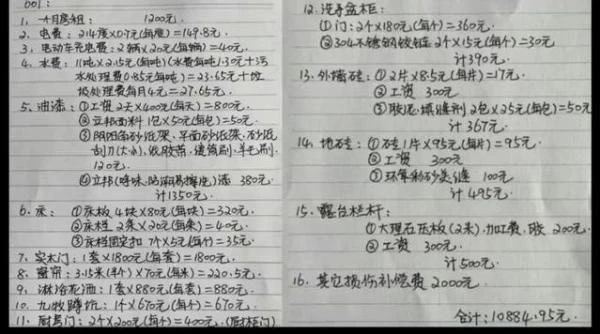 001:
1、一个月房租: 1200元.
2、电费: 214度×0.7元(每度)=149.8元.
3、电动车充电费:2辆×20元(每辆)=40元.
4、水费: 11吨×2.15元(每吨)(水费每吨1.30元+污
水处理费0.85元每吨)=23.65元+垃
圾处理费每月4元=27.65元.
5、油漆: ①工资2天×400元(每天)=800元.
②立邦面料1包×50元(每包)=50元
③阴阳角砂纸架、平面砂纸架、砂纸
刮刀(大小)、胶带、建筑刷、羊毛刷.
120元.
④立邦漆 380元.
计1350元.
6、床: ①床板4块×80元(每块)=320元.
②床档2条×20元(每条)=40元.
③床档固定扣7个×5元(每个)=35元.
7、实木门: 1套×1800元(每套)=1800元.
8、窗帘: 3.15米(4个)×70元(每米)=220.5元.
9、淋浴花洒: 1套×880元(每套)=880元.
10、九牧蹲坑: 1个×670元(每个)=670元.
11、厨房门: 2个×200元(每个)=400元.(厨柜门)
12、洗手盆柜:
①门:2个×180元(每个)=360元.
②304不锈钢铰链2个×15元(每个)=30元
计390元.
13、外墙砖: ①2片×8.5元(每片)=17元.
②工资 300元
③胶泥、填缝剂2包×25元(每包)=50元
计367元.
14、地砖: ①砖1片×95元(每片)=95元.
②工资 300元.
③环氧彩砂美缝 100元
计495元.
15、露台栏杆:
①大理石压板(2米)、加工费、胶 200元.
②工资 300元.
计500元.
16、其它损伤补偿费2000元.
合计:10884.95元.